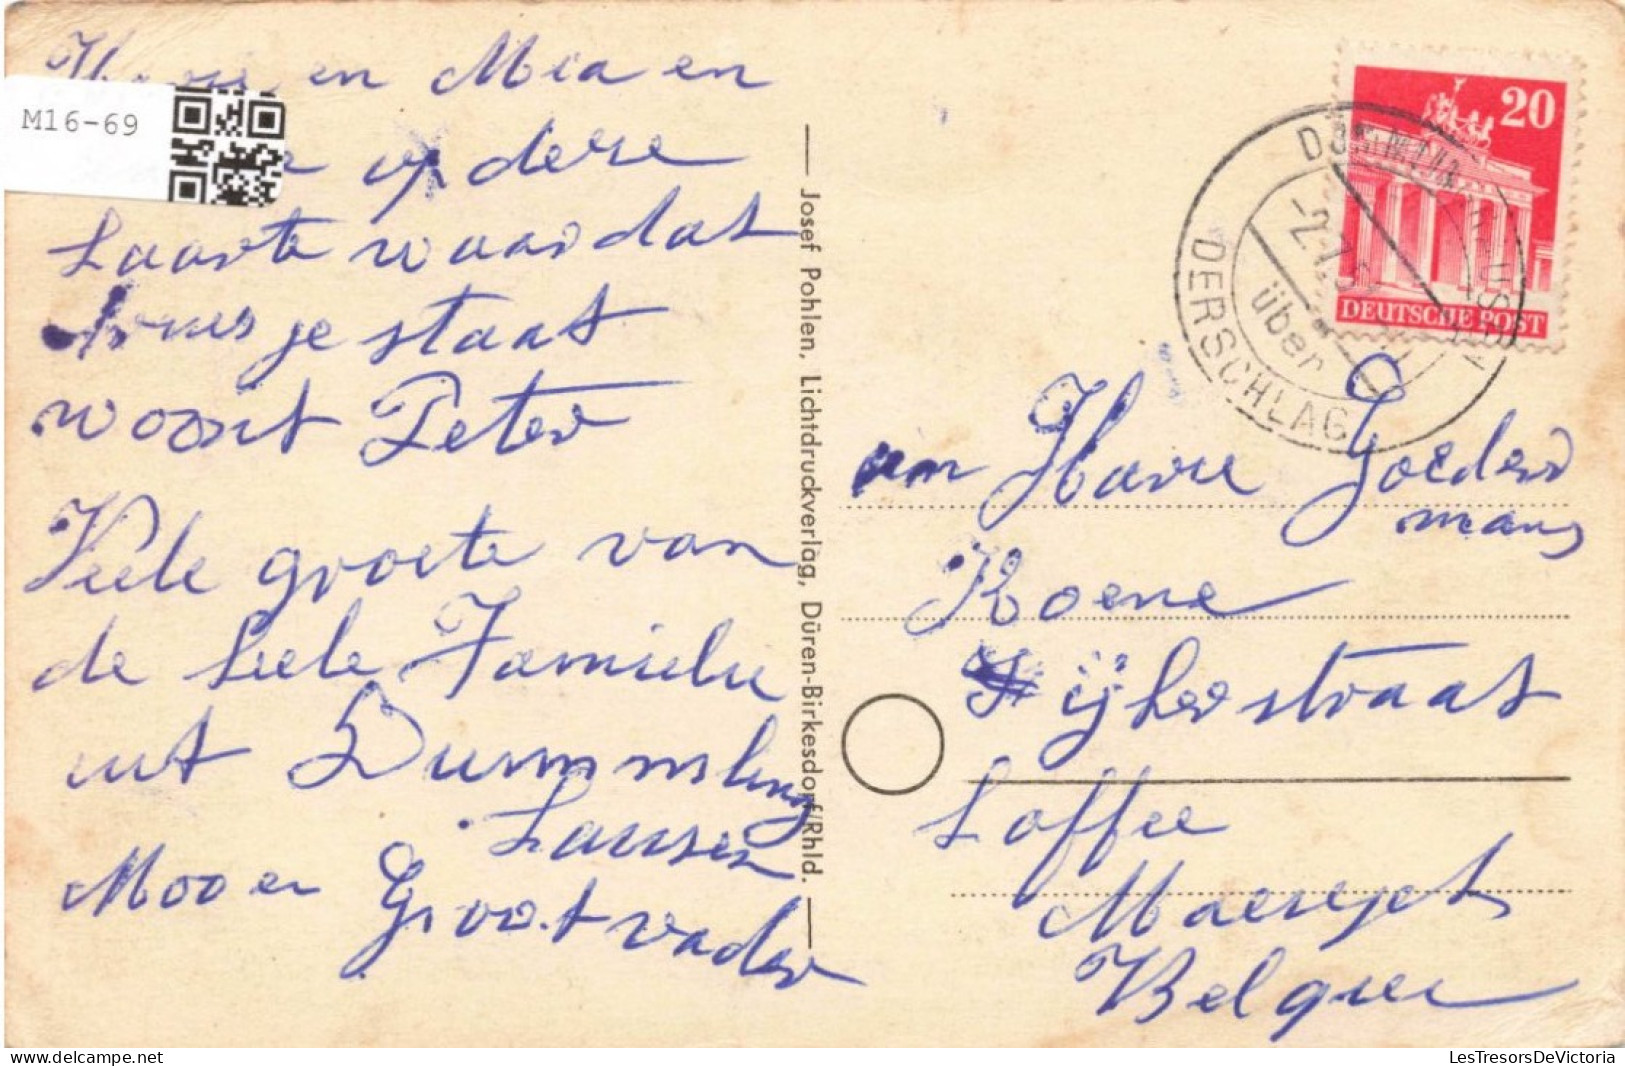 M16-69
en Mia en
op dese
kaarte waar dat
kruisje staat
woont Peter
Veele groete van
de heele Familie
uit Dummsling
hausen
Moo en
Grootvader
Josef Pohlen, Lichtdruckverlag, Düren-Birkesdorf/Rhld.
20
DEUTSCHE POST
DERSCHLAG
über
-2.7.5
an Harre Goeder
mans
Koene
ijkerstraat
Loffee
Maeseyck
Belgiee
LesTresorsDeVictoria
www.delcampe.net